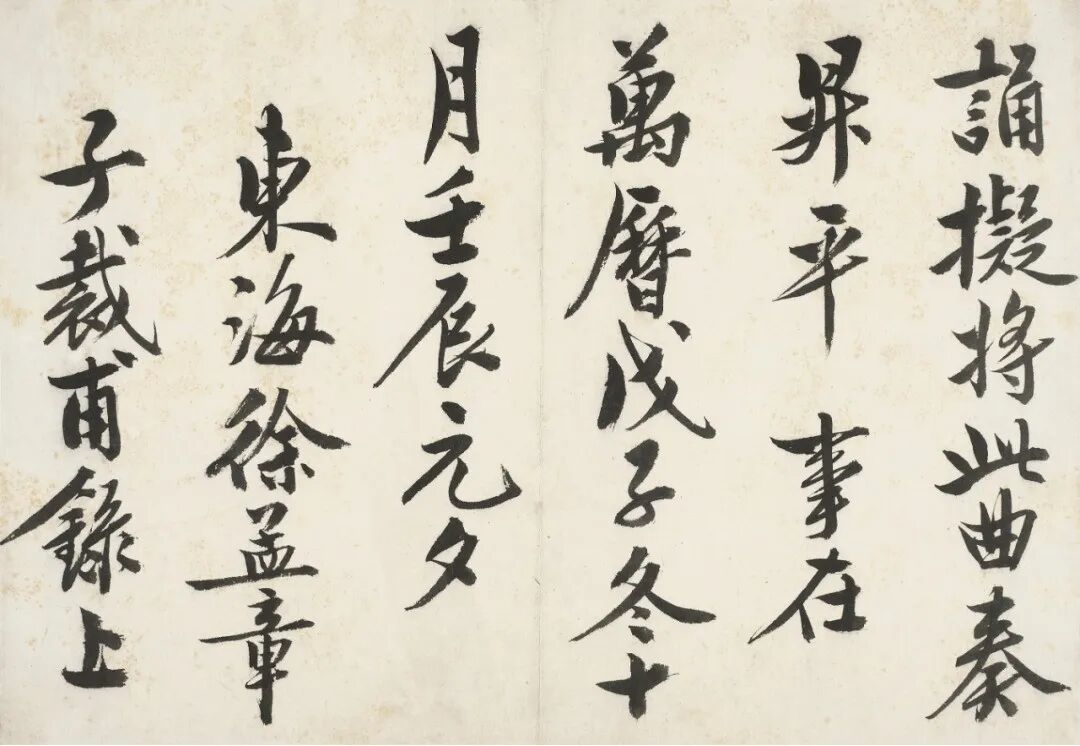 誦擬將此曲奏
昇平 事在
萬曆戊子冬十
月壬辰元夕
東海徐孟章
子裁甫錄上